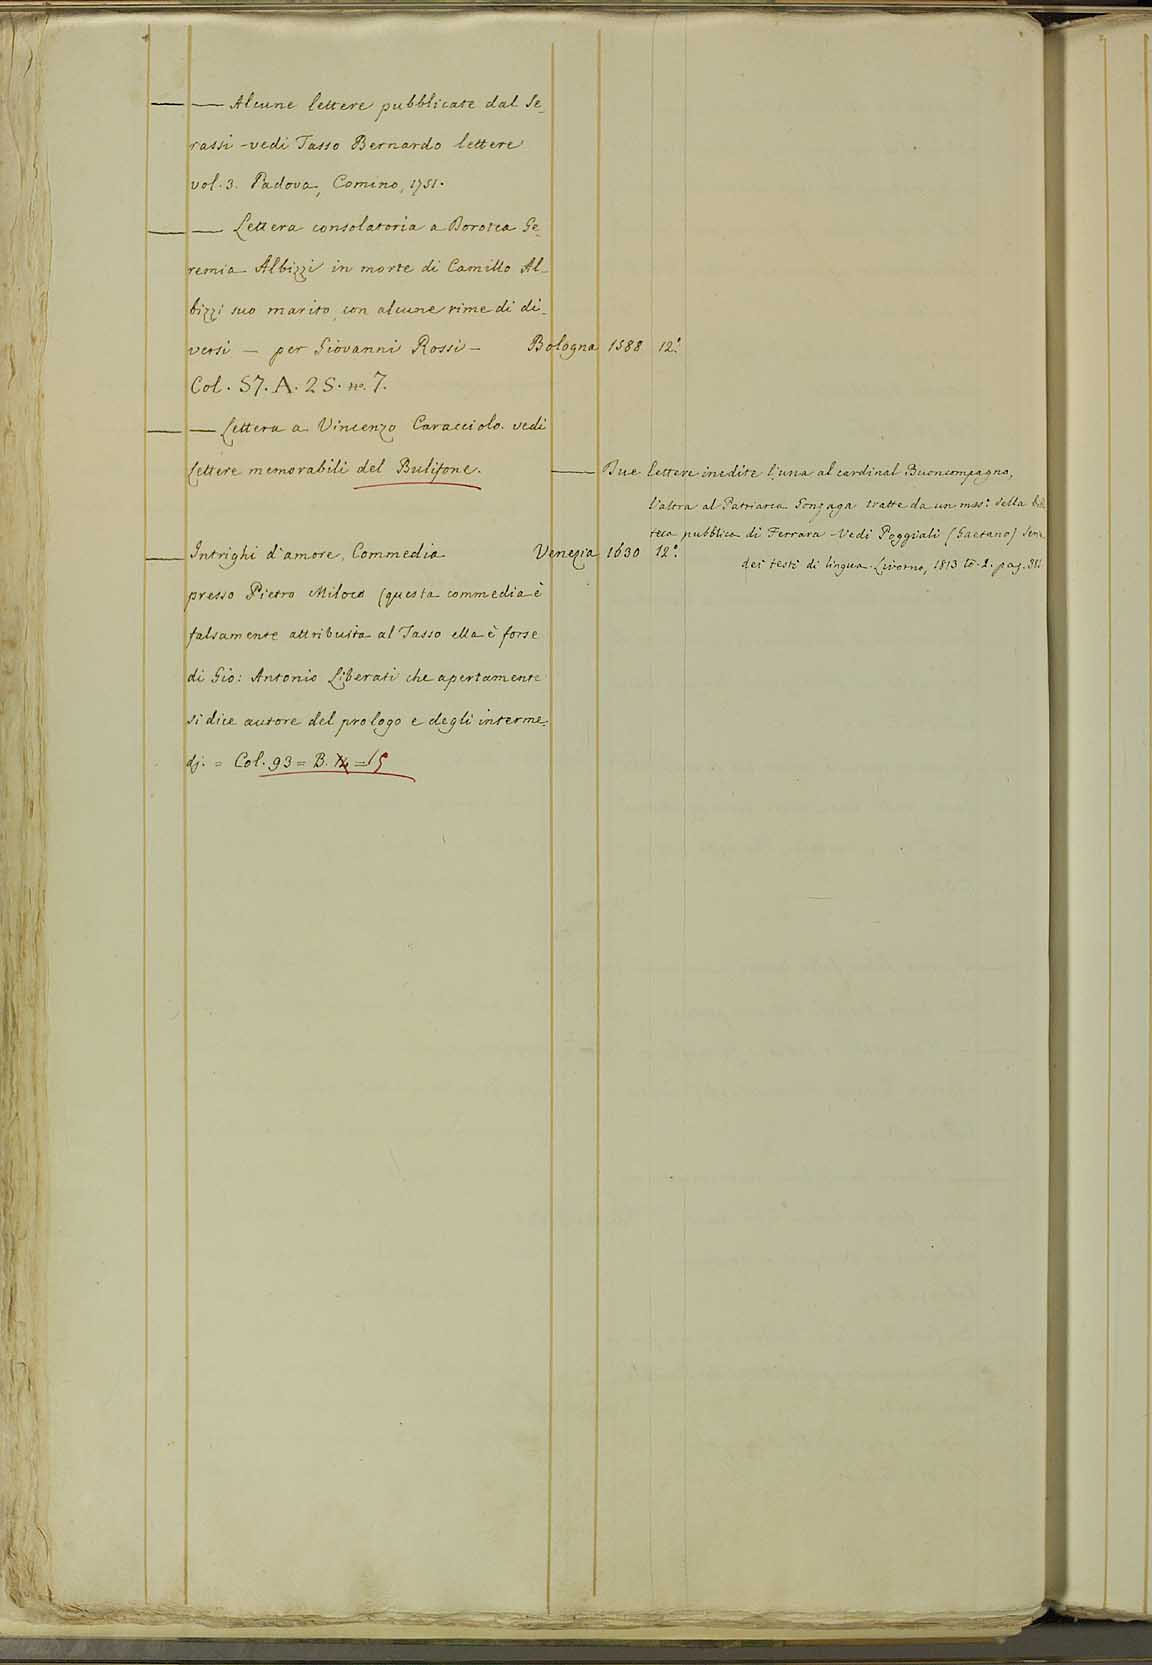 — — Alcune lettere pubblicate dal Se-
rassi - vedi Tasso Bernardo lettere
vol. 3. Padova, Comino, 1751.
— — Lettera consolatoria a Dorotea Ge-
remia Albizzi in morte di Camillo Al-
bizzi suo marito, con alcune rime di di-
versi — per Giovanni Rossi — Bologna 1588 12.°
Col. 57. A. 25. no. 7.
— — Lettera a Vincenzo Caracciolo. vedi
Lettere memorabili del Bulifone.
— Due lettere inedite l'una al cardinal Buoncompagno,
l'altra al Patriarca Gonzaga tratte da un mss.° della
teca pubblica di Ferrara - Vedi Poggiali (Gaetano) Serie
dei testi di lingua. Livorno, 1813 to. 2. pag.
— Intrighi d'amore, Commedia Venezia 1630 12.°
presso Pietro Miloco (questa commedia è
falsamente attribuita al Tasso ella è forse
di Gio: Antonio Liberati che apertamente
si dice autore del prologo e degli interme-
dj. = Col. 93 = B. 14 = 15